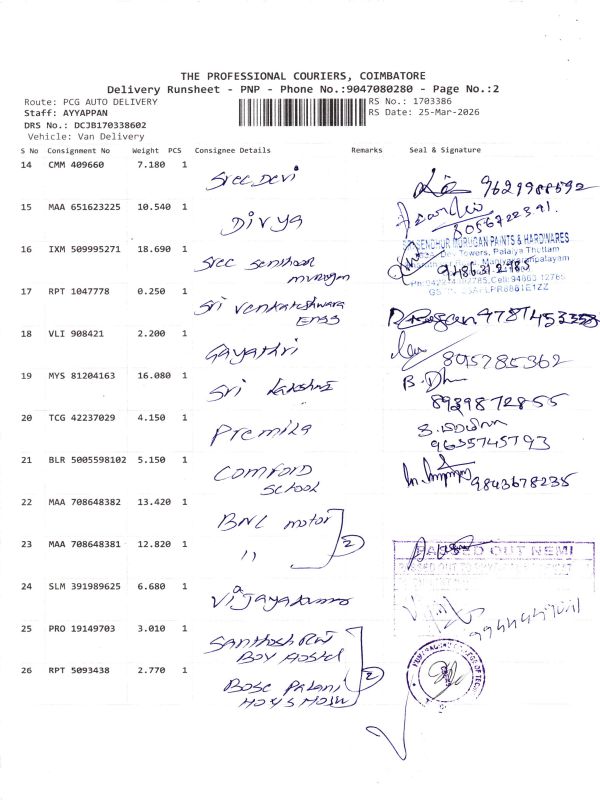 THE PROFESSIONAL COURIERS, COIMBATORE
Delivery Runsheet - PNP - Phone No.:9047080280 - Page No.:2
Route: PCG AUTO DELIVERY
RS No.: 1703386
Staff: AYYAPPAN
RS Date: 25-Mar-2026
DRS No.: DCJB170338602
Vehicle: Van Delivery
S No Consignment No Weight PCS Consignee Details Remarks Seal & Signature
14 CMM 409660 7.180 1 Sree Devi 9629988592
15 MAA 651623225 10.540 1 Divya 8056722391
16 IXM 509995271 18.690 1 Sree Senthoor
murugan
SENDHUR MURUGAN PAINTS & HARDWARES
Dev Towers, Palaiya Thottam
17 RPT 1047778 0.250 1 Sri Venkateshwara
Engg
18 VLI 908421 2.200 1 Gayathri 8095785362
19 MYS 81204163 16.080 1 Sri Lakshmi B. Dh
8939872855
20 TCG 42237029 4.150 1 Premila
9635745793
21 BLR 5005598102 5.150 1 Comford
School
9843678235
22 MAA 708648382 13.420 1 BNC motor
23 MAA 708648381 12.820 1 " 2
24 SLM 391989625 6.680 1 Vijayakumar
25 PRO 19149703 3.010 1 Santhosh Raj
Boy Hostel
26 RPT 5093438 2.770 1 Bose Palani 2